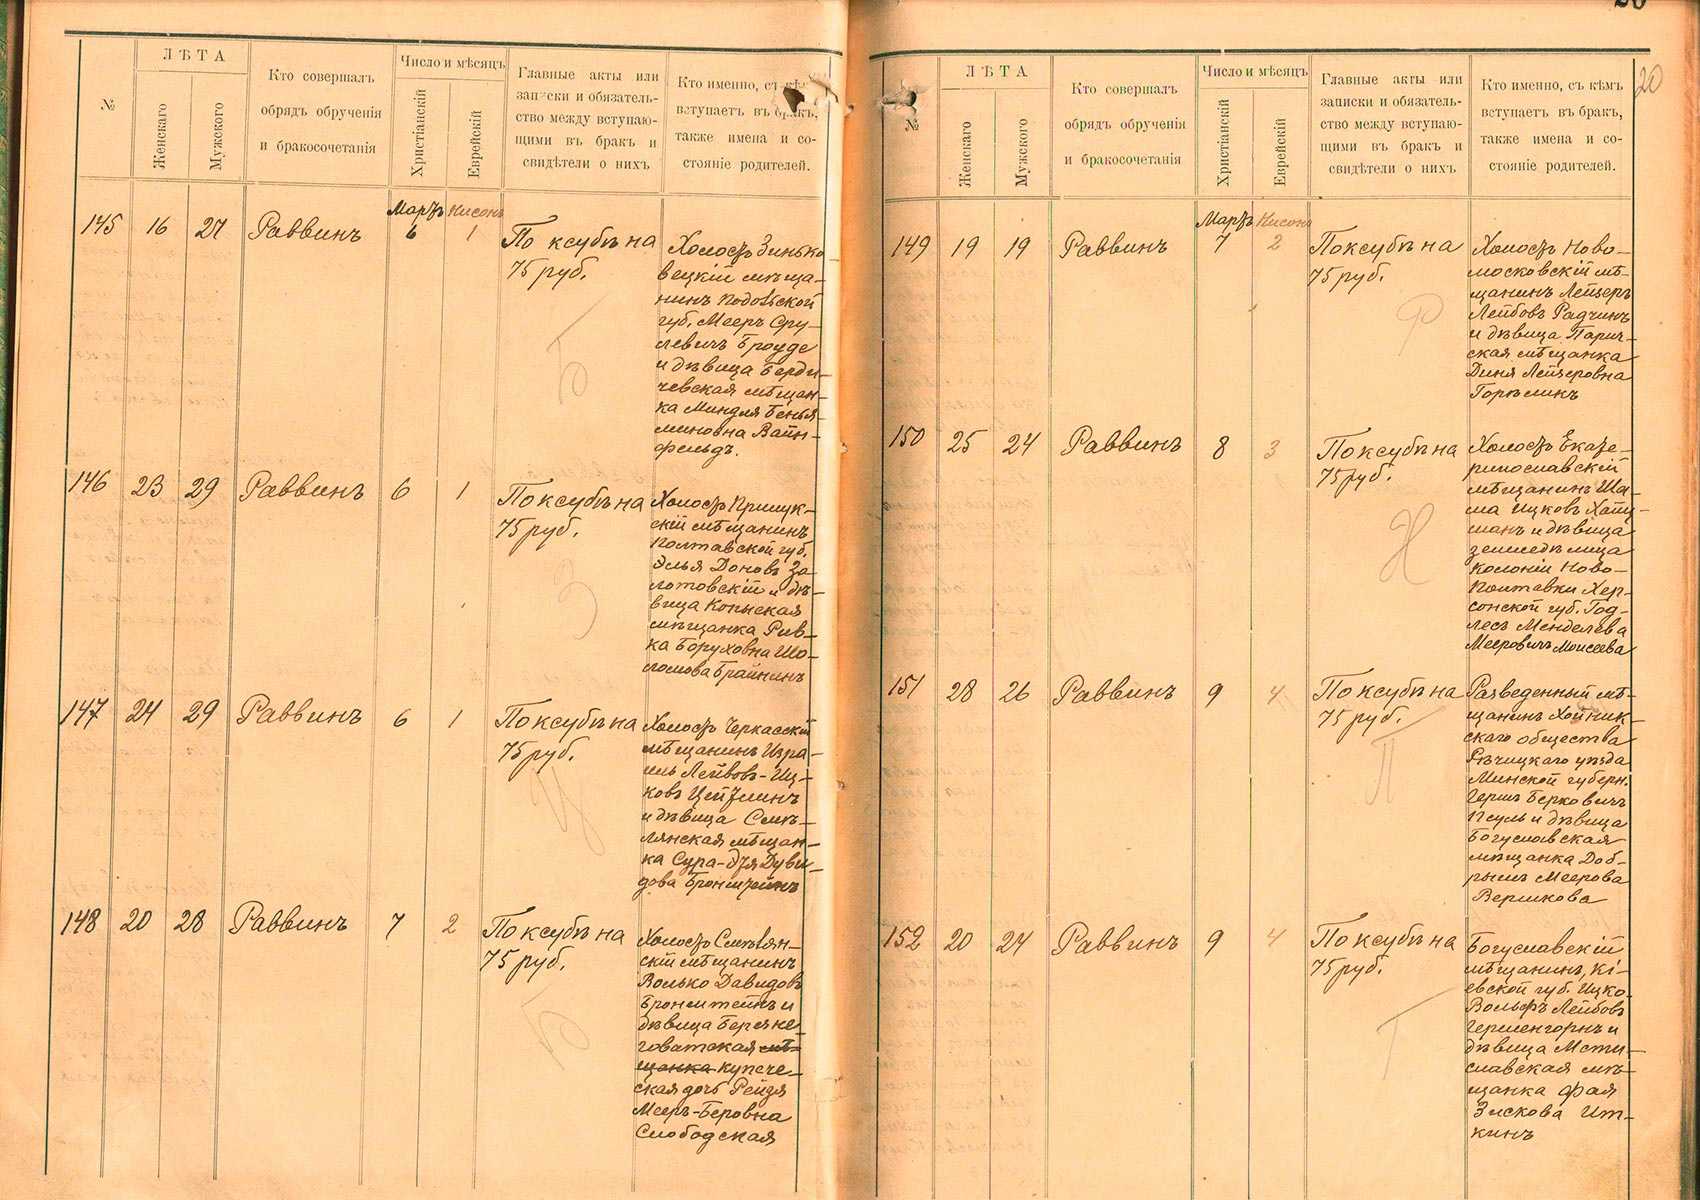 №
ЛѢТА
Женскаго
Мужского
Кто совершалъ
обрядъ обрученія
и бракосочетанія
Число и мѣсяцъ
Христіанскій
Еврейскій
Главные акты или
записки и обязатель-
ство между вступаю-
щими въ бракъ и
свидѣтели о нихъ
Кто именно, съ кѣмъ
вступаетъ въ бракъ,
также имена и со-
стояніе родителей.
Мартъ Нисонъ
145 16 27 Раввинъ 6 1
По ксубѣ на
75 руб.
Б
Холостъ Зинько
вецкій мѣща-
нинъ Подольской
губ. Мееръ Сру-
левичъ Броуде
и дѣвица Берди-
чевская мѣщан-
ка Миндля Бенья-
миновна Вайн-
фельдъ.
146 23 29 Раввинъ 6 1
По ксубѣ на
75 руб.
З
Холостъ Прилук-
скій мѣщанинъ
Полтавской губ.
Элья Доновъ Зо-
лотовскій и дѣ-
вица Копыская
мѣщанка Рив-
ка Боруховна Шо-
ломова Брайнинъ
147 24 29 Раввинъ 6 1
По ксубѣ на
75 руб.
Ц
Холостъ Черкасскій
мѣщанинъ Изра-
иль Лейбовъ-Иц-
ковъ Цейтлинъ
и дѣвица Смѣ-
лянская мѣщан-
ка Сура- Дуви-
дова Бронштейнъ
148 20 28 Раввинъ 7 2
По ксубѣ на
75 руб.
Б
Холостъ Смѣлян-
скій мѣщанинъ
Волько Давидовъ
Бронштейнъ и
дѣвица Березне-
говатская мѣ-
щанка купече-
ская дочь Рейзя
Мееръ-Беровна
Слободская
20
№
ЛѢТА
Женскаго
Мужского
Кто совершалъ
обрядъ обрученія
и бракосочетанія
Число и мѣсяцъ
Христіанскій
Еврейскій
Главные акты или
записки и обязатель-
ство между вступаю-
щими въ бракъ и
свидѣтели о нихъ
Кто именно, съ кѣмъ
вступаетъ въ бракъ,
также имена и со-
стояніе родителей.
Мартъ Нисонъ
149 19 19 Раввинъ 7 2
По ксубѣ на
75 руб.
Р
Холостъ Ново-
московскій мѣ-
щанинъ Лейзеръ
Лейбовъ Радчинъ
и дѣвица Парич-
ская мѣщанка
Диня Лейзеровна
Горѣликъ
150 25 24 Раввинъ 8 3
По ксубѣ на
75 руб.
Холостъ Екате-
ринославскій
мѣщанинъ Ша-
ма Ицковъ
манъ и дѣвица
земледѣлица
колоніи Ново-
Полтавки Хер-
сонской губ. Год-
лесъ Менделева
Мееровичъ Моисеева
151 28 26 Раввинъ 9 4
По ксубѣ на
75 руб.
П
Разведенный мѣ-
щанинъ Хойник-
скаго общества
Рѣчицкаго уѣзда
Минской губерн.
Гершъ Берковичъ
и дѣвица
Богуславская
мѣщанка Доб-
рышъ Меерова
Вершкова
152 20 24 Раввинъ 9 4
По ксубѣ на
75 руб.
Г
Богуславскій
мѣщанинъ, Кі-
евской губ. Ицко-
Вольфъ Лейбовъ
Гершенгорнъ и
дѣвица Мсти-
славская мѣ-
щанка Фая
Зискова Ит-
кинъ